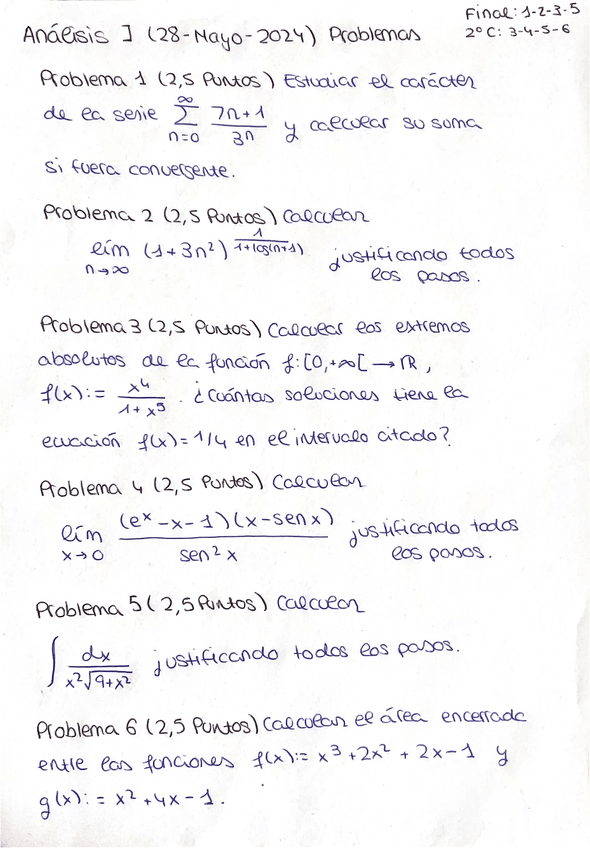 Final: 1-2-3-5
Análisis I (28-Mayo-2024) Problemas
2º C: 3-4-5-6
Problema 1 (2,5 Puntos) Estudiar el carácter
de la serie ∑_{n=0}^{∞} (7n+1)/(3^n) y calcular su suma
si fuera convergente.
Problema 2 (2,5 Puntos) Calcular
lím_{n→∞} (1+3n²)^{1/(1+log(n+1))} justificando todos
los pasos.
Problema 3 (2,5 Puntos) Calcular los extremos
absolutos de la función f:[0,+∞[ → ℝ,
f(x):= x⁴/(1+x⁵). ¿Cuántas soluciones tiene la
ecuación f(x)=1/4 en el intervalo citado?
Problema 4 (2,5 Puntos) Calcular
lím_{x→0} ((e^x-x-1)(x-sen x))/(sen² x) justificando todos
los pasos.
Problema 5 (2,5 Puntos) Calcular
∫ dx/(x²√(9+x²)) justificando todos los pasos.
Problema 6 (2,5 Puntos) Calcular el área encerrada
entre las funciones f(x):= x³+2x²+2x-1 y
g(x):= x²+4x-1.